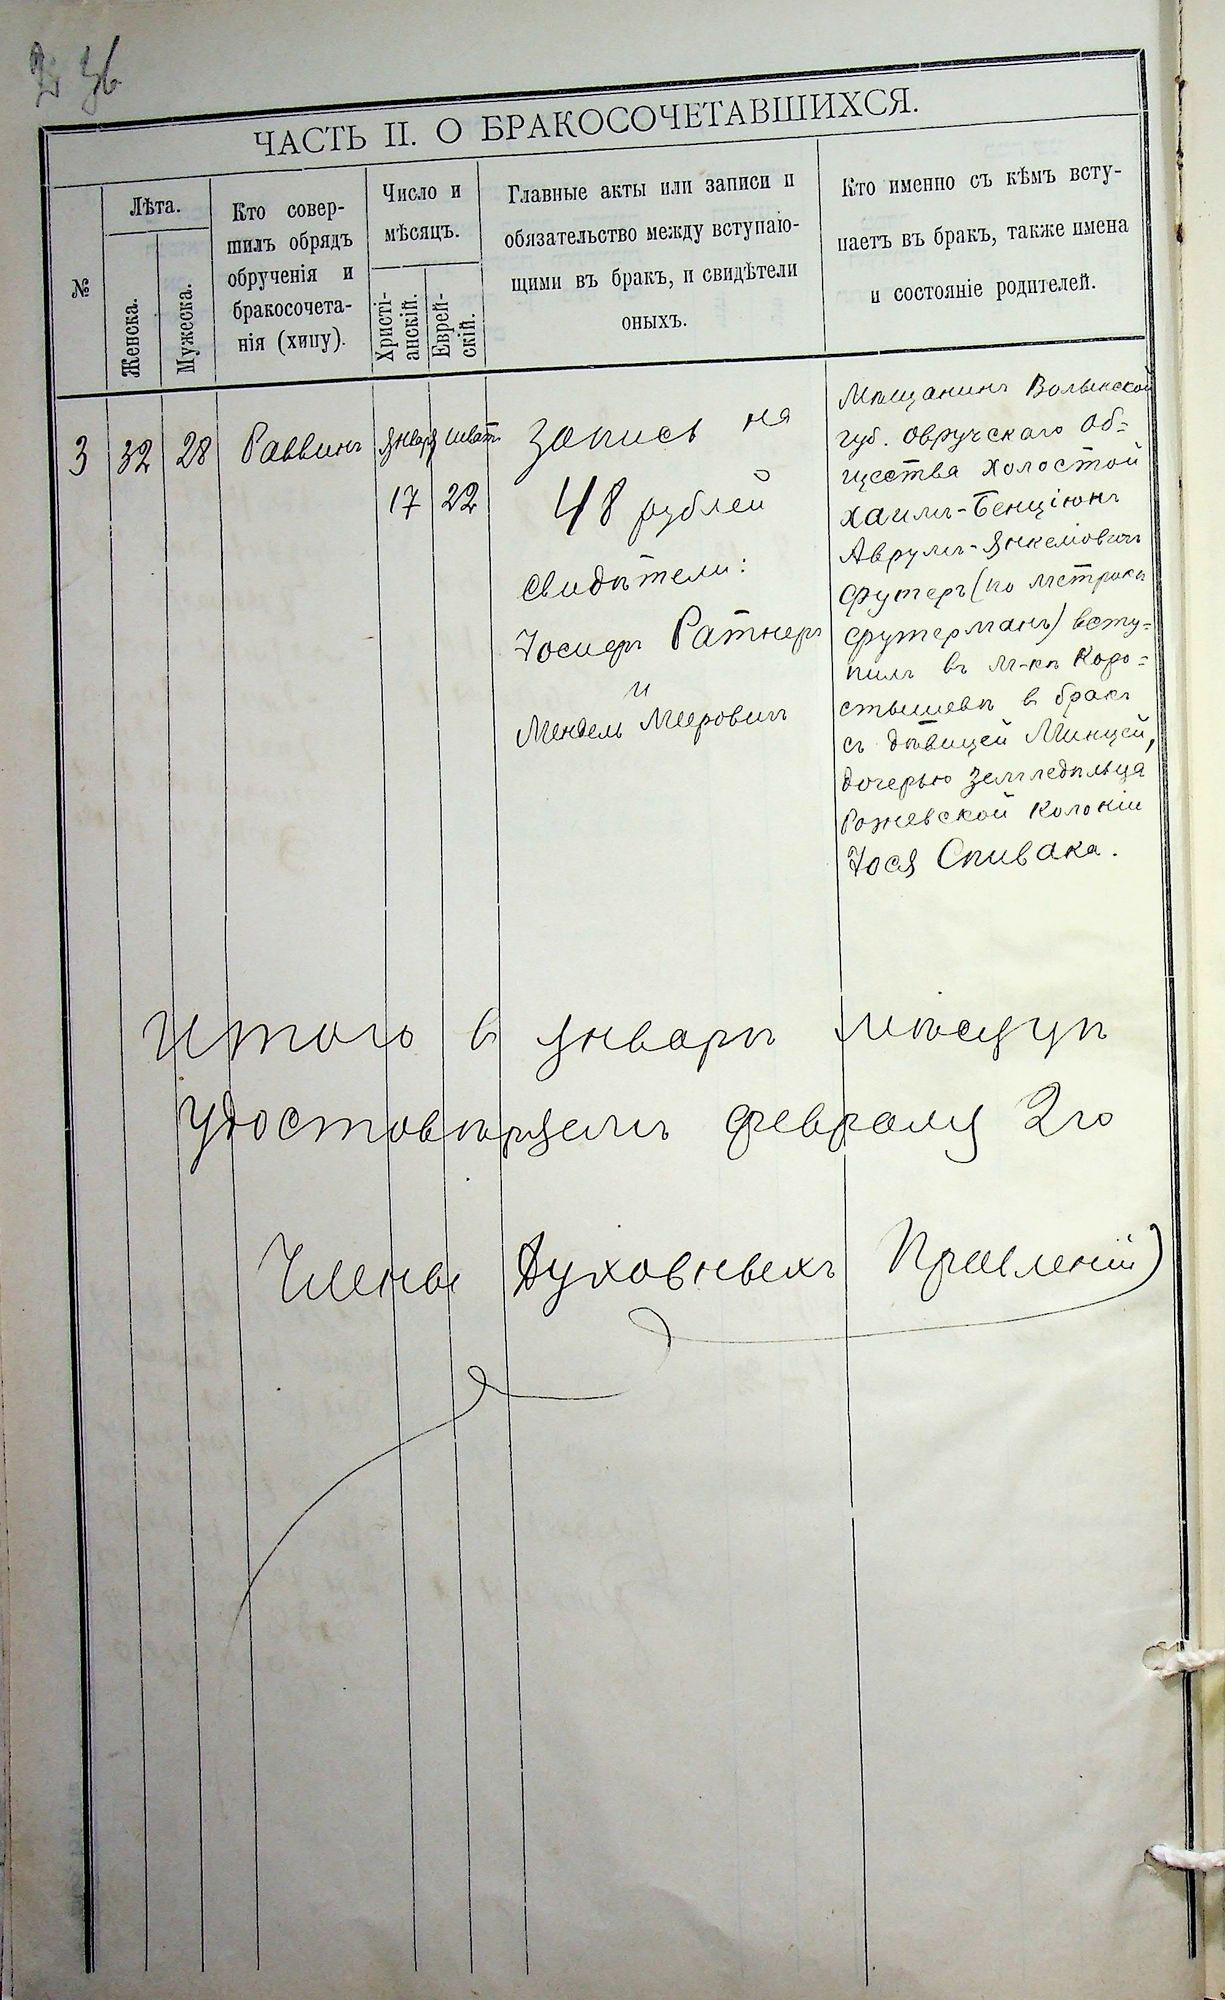 36
ЧАСТЬ II. О БРАКОСОЧЕТАВШИХСЯ.
№
Лѣта.
Женска.
Мужеска.
Кто совер-
шилъ обрядъ
обрученія и
бракосочета-
нія (хипу).
Число и
мѣсяцъ.
Христі-
анскій.
Еврей-
скій.
Главные акты или записи и
обязательство между вступаю-
щими въ бракъ, и свидѣтели
оныхъ.
Кто именно съ кѣмъ всту-
паетъ въ бракъ, также имена
и состояніе родителей.
3
32
28
Раввинъ
Января
17
Шватъ
22
Запись на
48 рублей
Свидѣтели:
Іосифъ Ратнеръ
и
Мендель Мееровичъ
Мѣщанинъ Волынской
губ. Овручскаго об=
щества холостой
Хаимъ-Бенціонъ
Аврумъ-Янкелiовичъ
Футеръ (по метрикѣ
Футерманъ) всту=
пилъ въ м-кѣ Коро=
стышевѣ в бракъ
съ дѣвицей Минцей,
дочерью земледѣльца
Рожевской колоніи
Іося Спивака.
Итого в январѣ мѣсяцѣ
удостовѣряемъ февраля 2го
Члены Духовныхъ Правленій